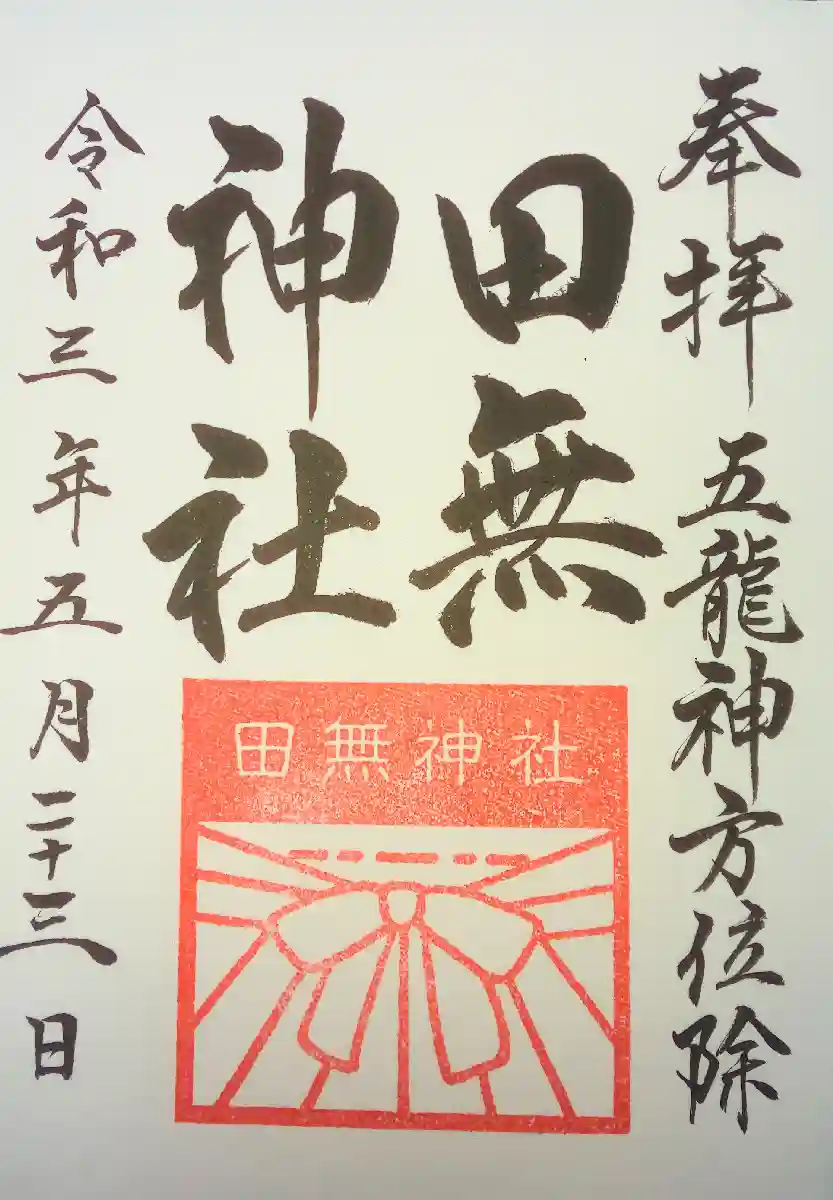 奉拝 五龍神方位除
田無
神社
田無神社
令和三年五月二十三日